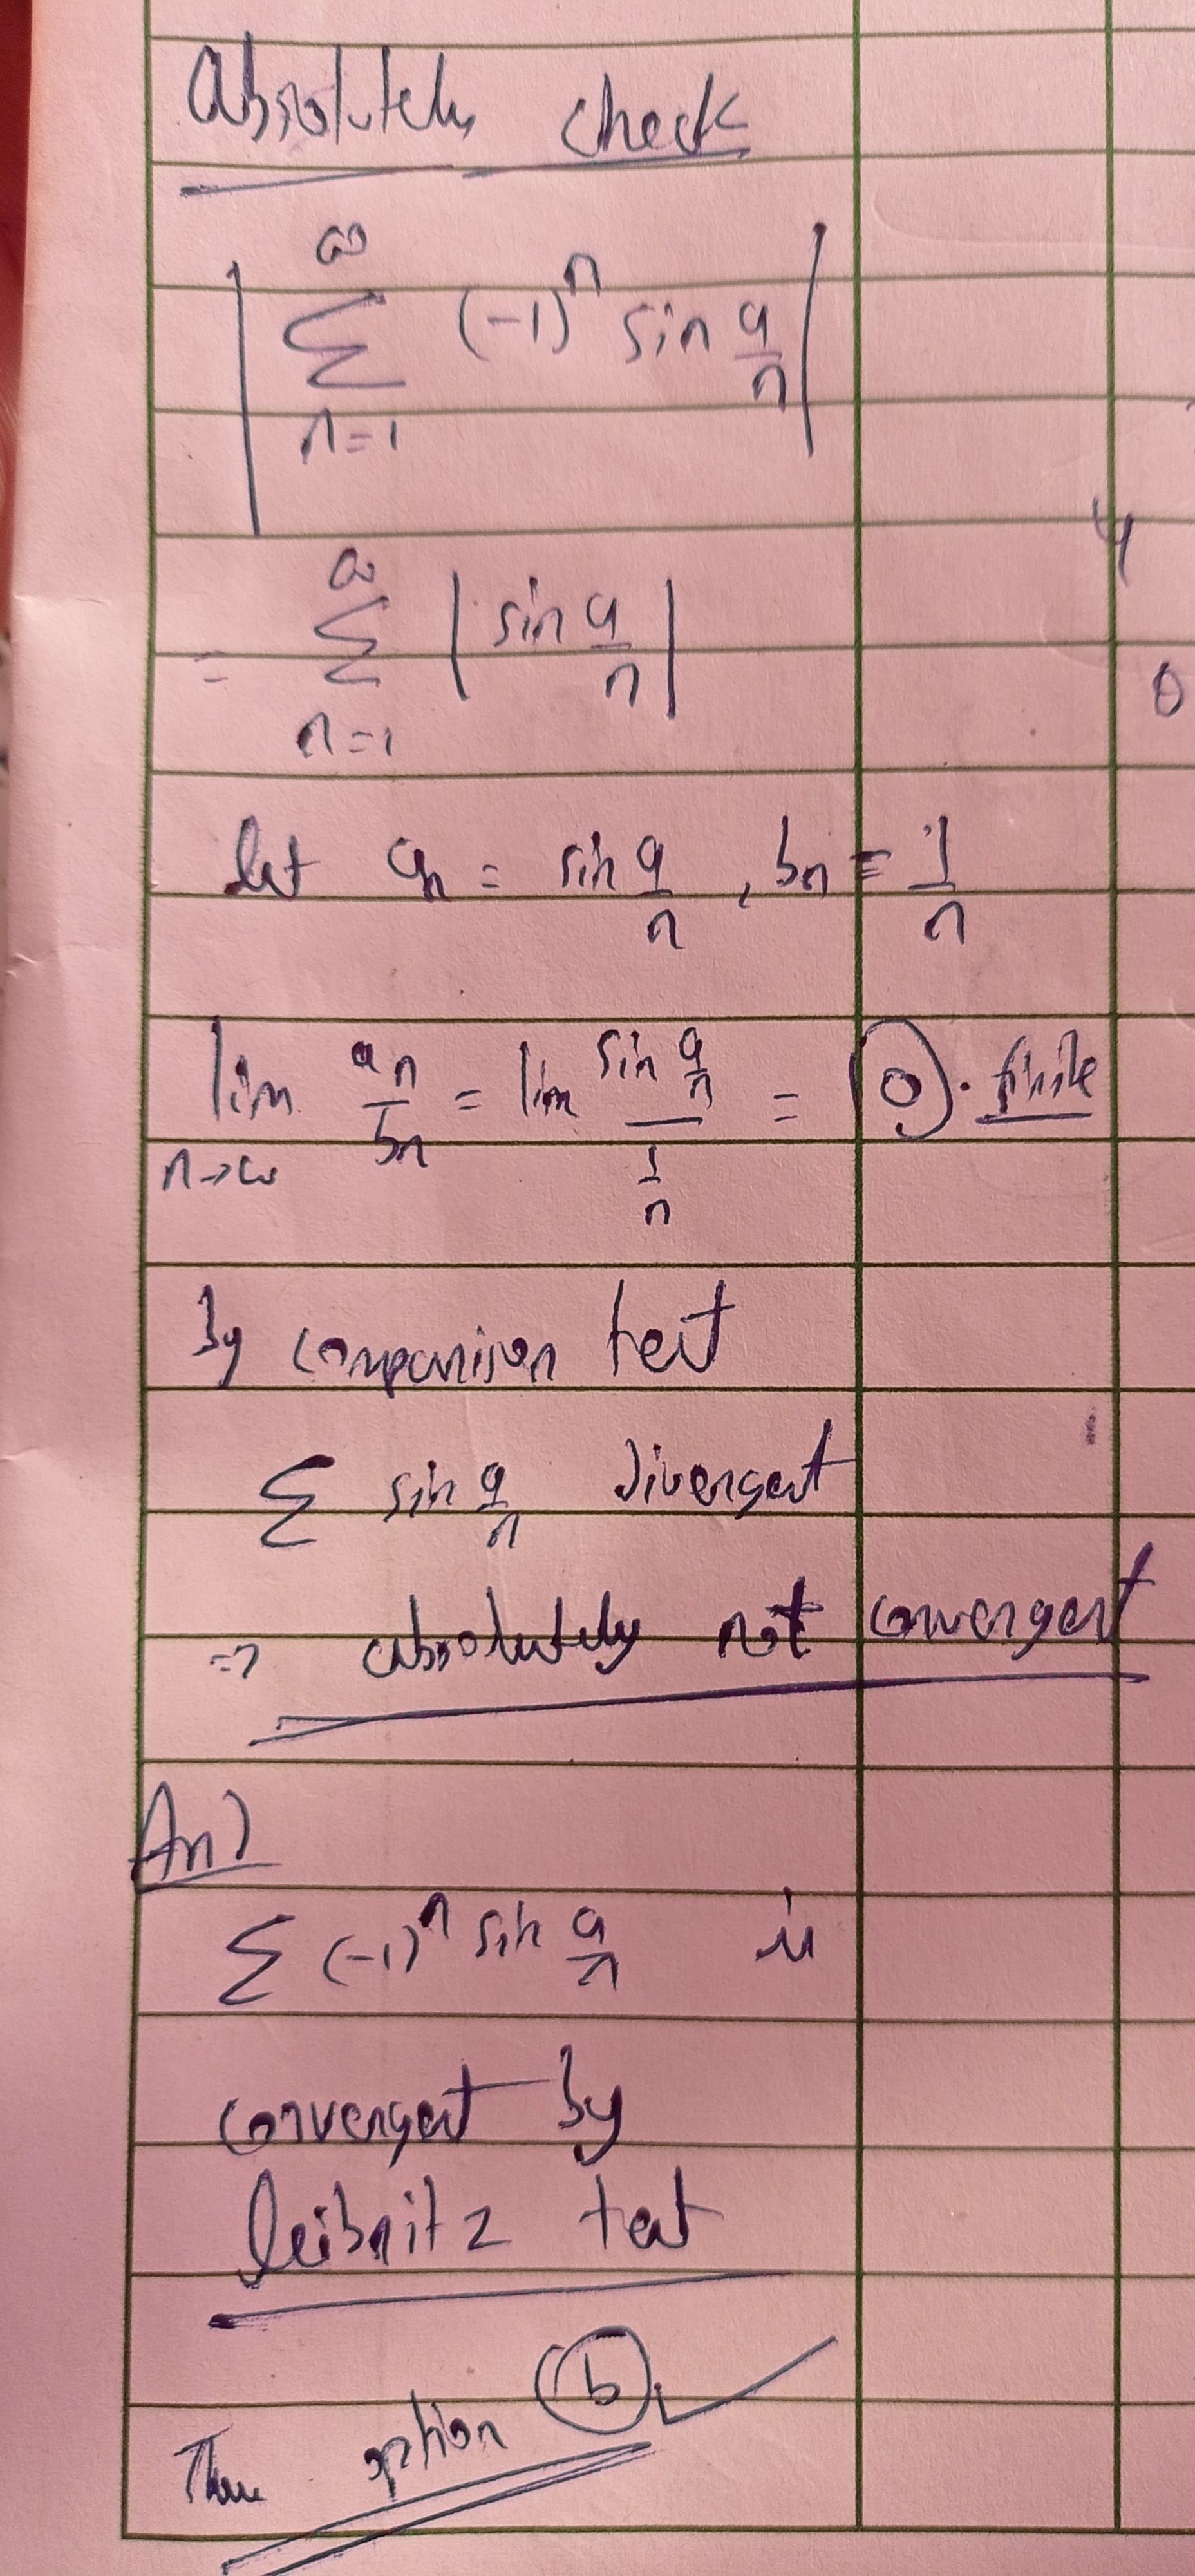 Absolutely check
| ∞ Σ n=1 (-1)^n sin a/n |
= ∞ Σ n=1 | sin a/n |
let an = sin a/n , bn = 1/n
lim n→∞ an/bn = lim sin a/n / 1/n = a . finite
By comparison test
Σ sin a/n divergent
⇒ absolutely not convergent
Σ (-1)^n sin a/n is
convergent by
leibnitz test
option b ✓
4
0